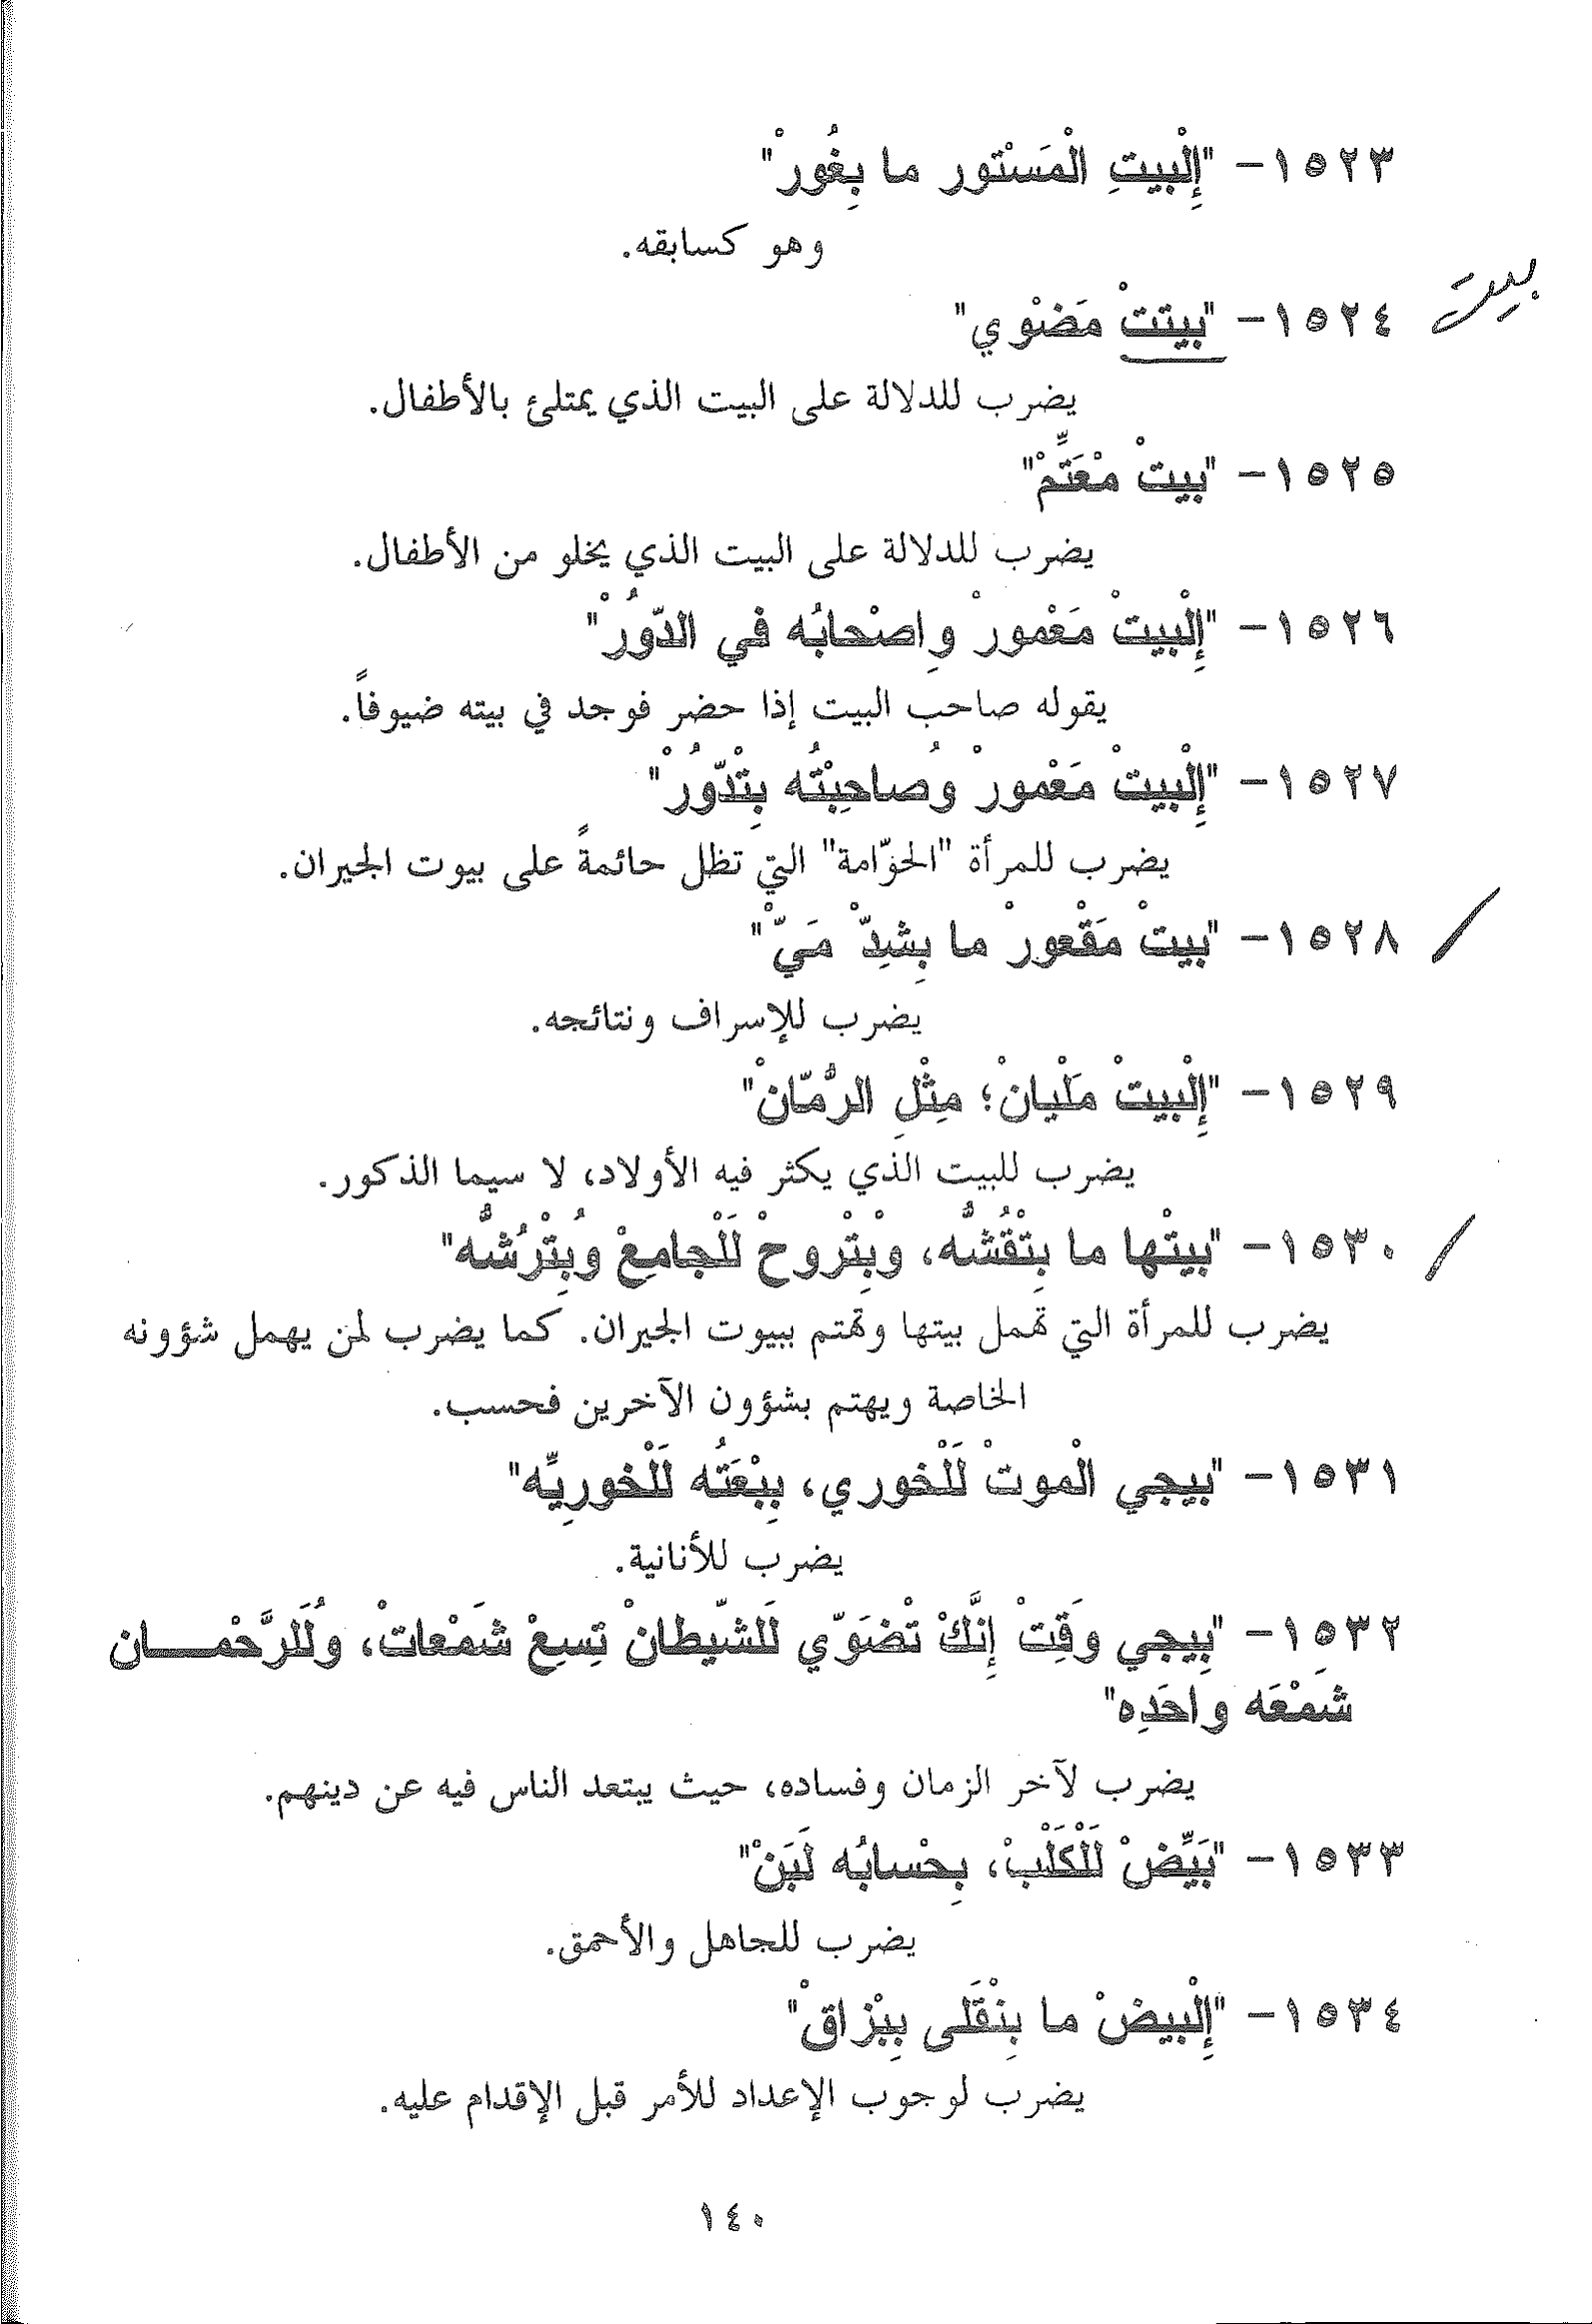 ١٥٢٣- "إِلْبيتِ الْمَسْتور ما بِغُورْ"
وهو كسابقه.
بيت
١٥٢٤- "بيتتْ مَضْوي"
يضرب للدلالة على البيت الذي يمتلئ بالأطفال.
١٥٢٥- "بيتْ مْعَتِّمْ"
يضرب للدلالة على البيت الذي يخلو من الأطفال.
١٥٢٦- "إِلْبيتْ مَعْمورْ وِاصْحابُه في الدّوُرْ"
يقوله صاحب البيت إذا حضر فوجد في بيته ضيوفاً.
١٥٢٧- "إِلْبيتْ مَعْمورْ وُصاحِبْتُه بِتْدّوُرْ"
يضرب للمرأة "الحوّامة" التي تظل حائمةً على بيوت الجيران.
١٥٢٨- "بيتْ مَقْعورْ ما بِشِدّْ مَيّْ"
يضرب للإسراف ونتائجه.
١٥٢٩- "إِلْبيتْ مَلْيانْ؛ مِثْلِ الرُّمّانْ"
يضرب للبيت الذي يكثر فيه الأولاد، لا سيما الذكور.
١٥٣٠- "بيتْها ما بِتْقُشُّه، وْبِتْروحْ لَلْجامِعْ وُبِتْرُشُّه"
يضرب للمرأة التي تهمل بيتها وتهتم ببيوت الجيران. كما يضرب لمن يهمل شؤونه
الخاصة ويهتم بشؤون الآخرين فحسب.
١٥٣١- "بيجي الْموتْ لَلْخوري، بِبْعَتُه لَلْخورِيِّه"
يضرب للأنانية.
١٥٣٢- "بِيجي وقَِتْ إِنَّكْ تْضَوّي لَلشّيطانْ تِسِعْ شَمْعاتْ، وُلَلرَّحْمـــان
شَمْعَه واحَدِه"
يضرب لآخر الزمان وفساده، حيث يبتعد الناس فيه عن دينهم.
١٥٣٣- "بَيِّضْ لَلْكَلْبْ، بِحْسابُه لَبَنْ"
يضرب للجاهل والأحمق.
١٥٣٤- "إِلْبيضْ ما بِنْقَلَى بِبْزاقْ"
يضرب لوجوب الإعداد للأمر قبل الإقدام عليه.
١٤٠